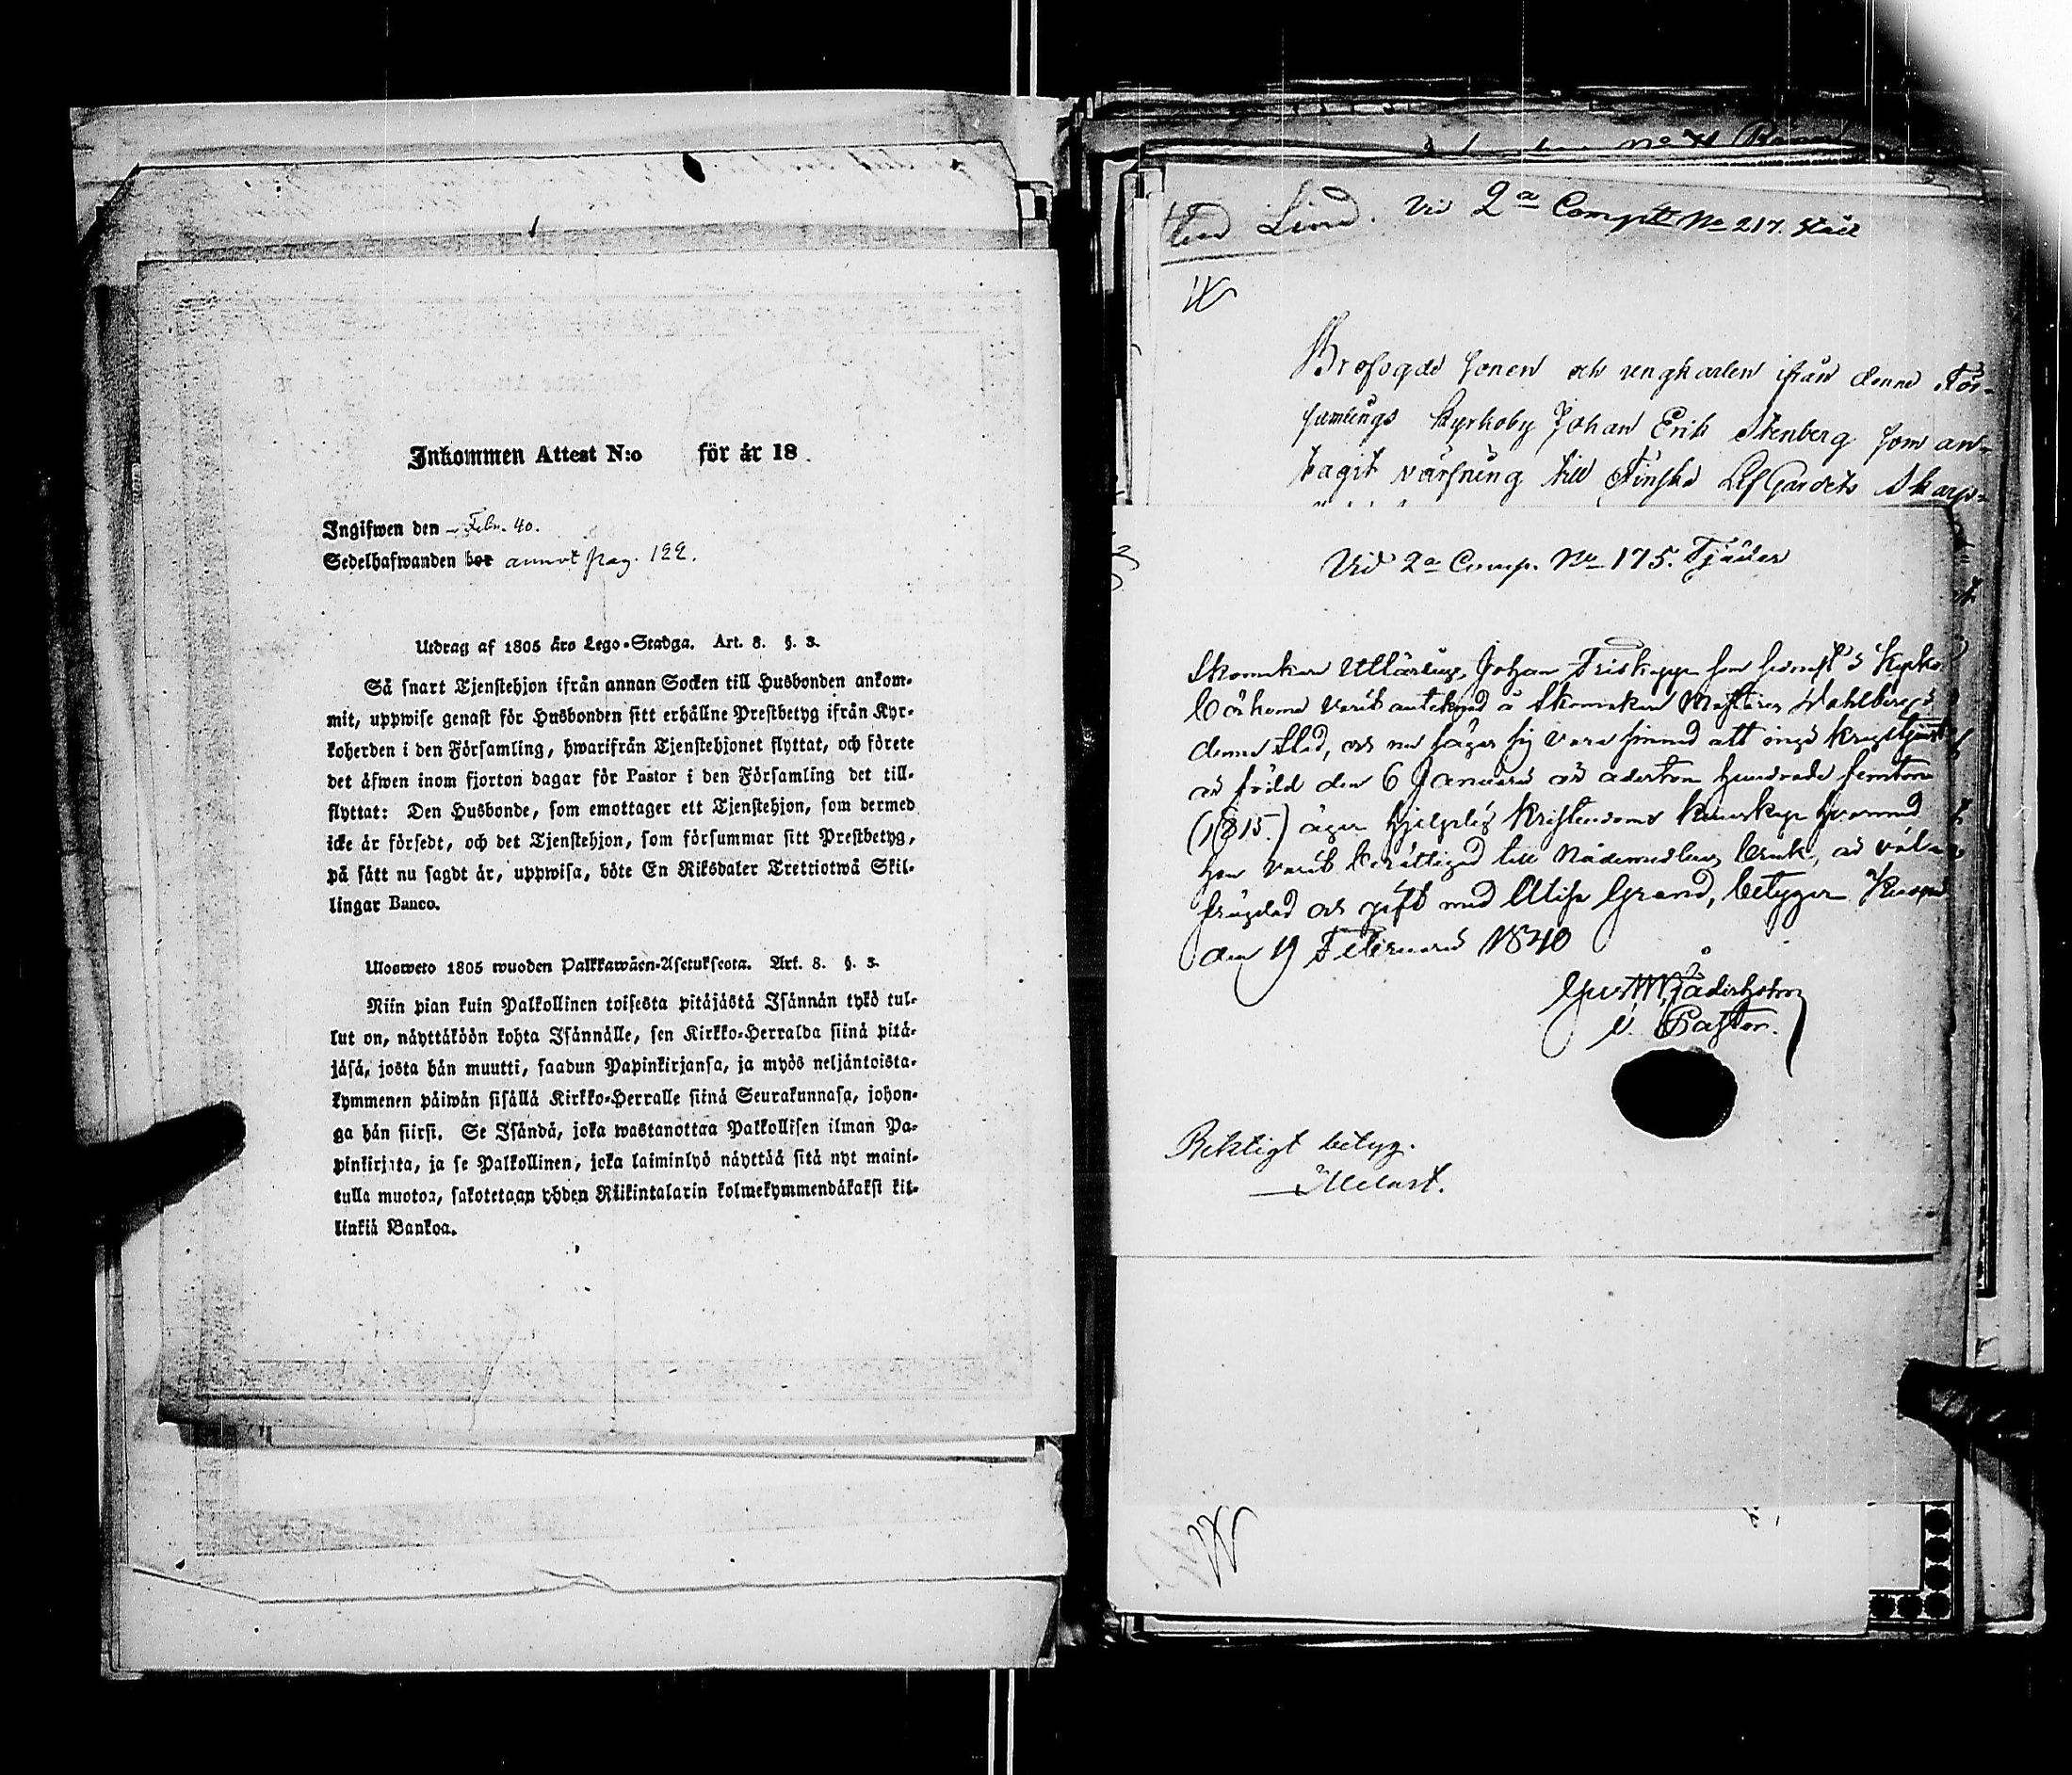 Inkommen Attest N:o för år 18
Ingifwen den – Febr. 40.
Sedelhafwanden bor annot pag. 122.
Utdrag af 1805 års Lego-Stadga. Art. 8. §. 3.
Så snart Tjenstehjon ifrån annan Socken till Husbonden ankom-
mit, uppwise genast för Husbonden sitt erhållne Prestbetyg ifrån Kyr-
koherden i den Församling, hwarifrån Tjenstehjonet flyttat, och förete
det äfwen inom fjorton dagar för Pastor i den Församling det till-
flyttat: Den Husbonde, som emottager ett Tjenstehjon, som dermed
icke är försedt, och det Tjenstehjon, som försummar sitt Prestbetyg,
på sätt nu sagdt är, uppwisa, böte En Riksdaler Trettiotwå Skil-
lingar Banco.
Ulosweto 1805 wuoden Palkkawäen-Asetuksesta. Art. 8. §. 3.
Niin pian kuin Palkollinen toisesta pitäjästä Isännän tykö tul-
lut on, näyttäköön kohta Isännälle, sen Kirkko-Herralda siinä pitä-
jäsä, josta hän muutti, saadun Papinkirjansa, ja myös neljäntoista-
kymmenen päiwän sisällä Kirkko-Herralle siinä Seurakunnasa, johon-
ga hän siirsi. Se Isändä, joka wastanottaa Palkollisen ilman Pa-
pinkirjata, ja se Palkollinen, joka laiminlyö näyttää sitä nyt maini-
tulla muotoa, sakotetaan yhden Riikintalarin kolmekymmendäkaksi kil-
linkiä Bankoa.
Lind. Vid 2a Comp No 217.
Brofogde sonen och ungkarlen ifrån denne För-
samlings Kyrkoby Johan Erik Stenberg som an-
tagit värfning till Finska LifGardets Skarp-
Vid 2a Comp. No 175. Tjäder
Skomakar Utlärling Johan Friskopp som
varit antecknad å Skomakar Mästaren Wahlbergs
denne Stad, och nu säger sig vara sinnad att ingå krigstjenst
är född den 6 Januarii år adertonhundrade femton
(1815.) äger hjelplig Kristendoms kunskap hvarmed
han varit berättigad till Nådemedlens bruk, är väl
frägdad och gift med Ulica Grand, betygar Kuopio
den 19 Februarii 1840
v. Pastor.
Riktigt betyg.